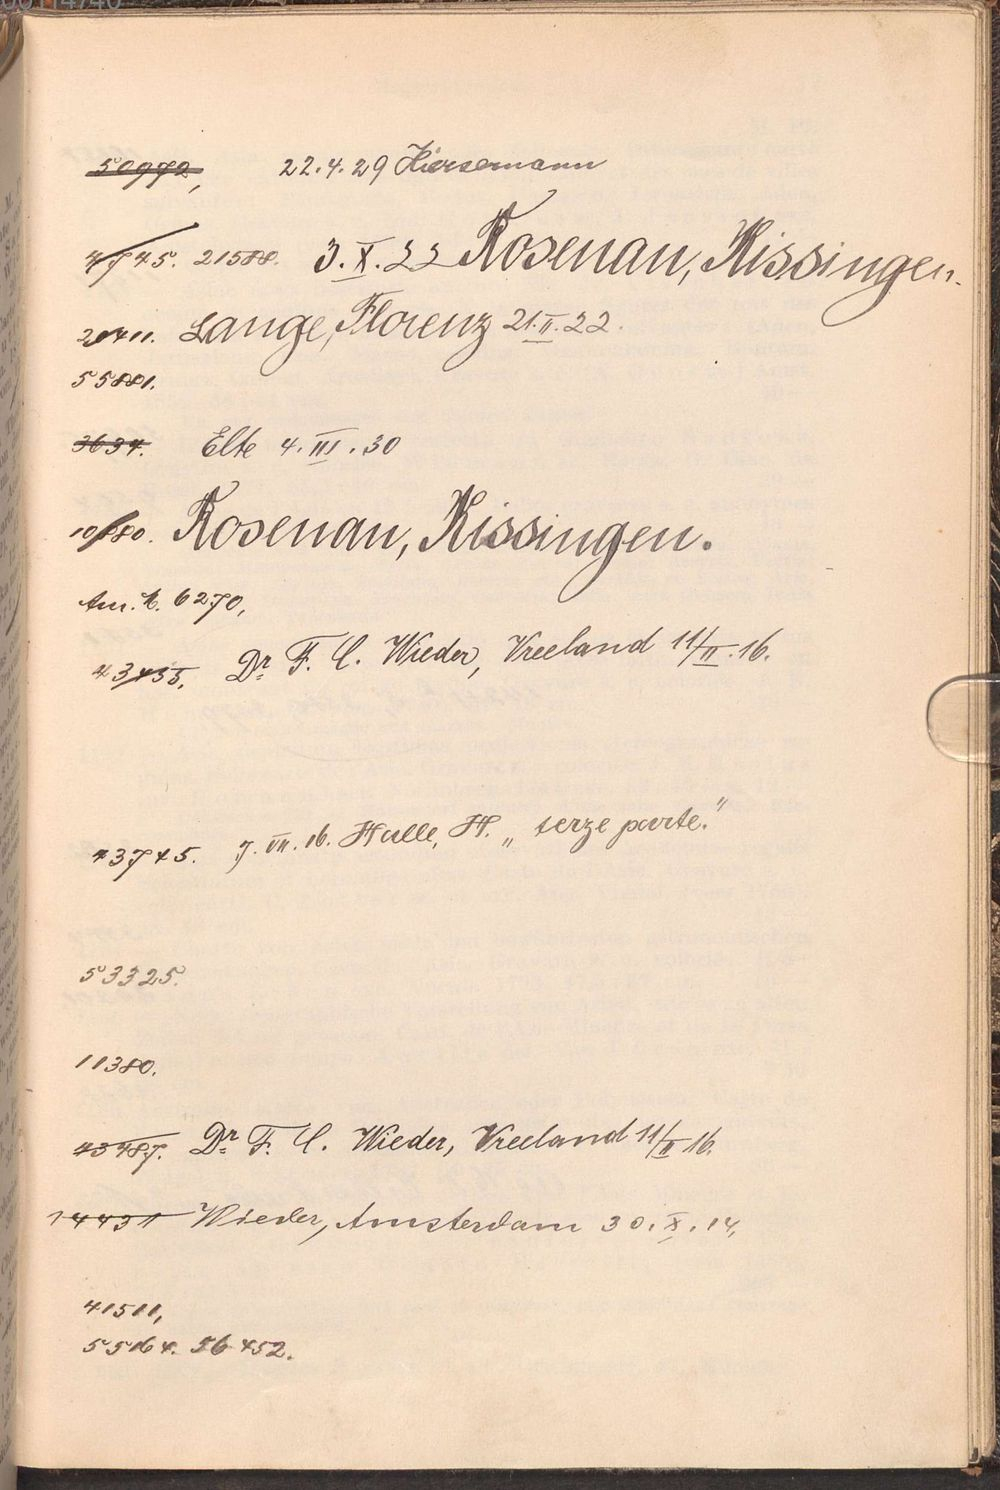 50972, 22.4.29 Hiersemann
4745. 21588. 3.X.22 Rosenau, Kissingen.
20411. Lange, Florenz 21.II.22.
55881.
3634. Elte 4.III.30
10880. Rosenau, Kissingen.
Am. K. 6270,
43435. Dr. F. C. Wieder, Vreeland 11/II.16.
43745. 7.VII.16. Halle, H. „terze parte."
53325.
11380.
43487. Dr. F. C. Wieder, Vreeland 11/II 16.
14431 Wieder, Amsterdam 30.X.14,
41511,
55164. 56452.